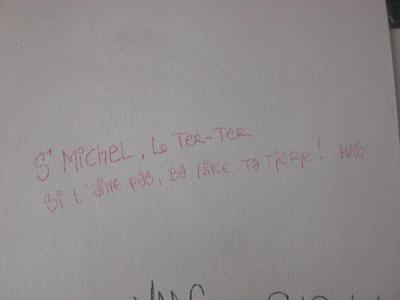 St MicheL, Le TeR-TeR
Si t'aime pas, BA NiKE TA MERE!